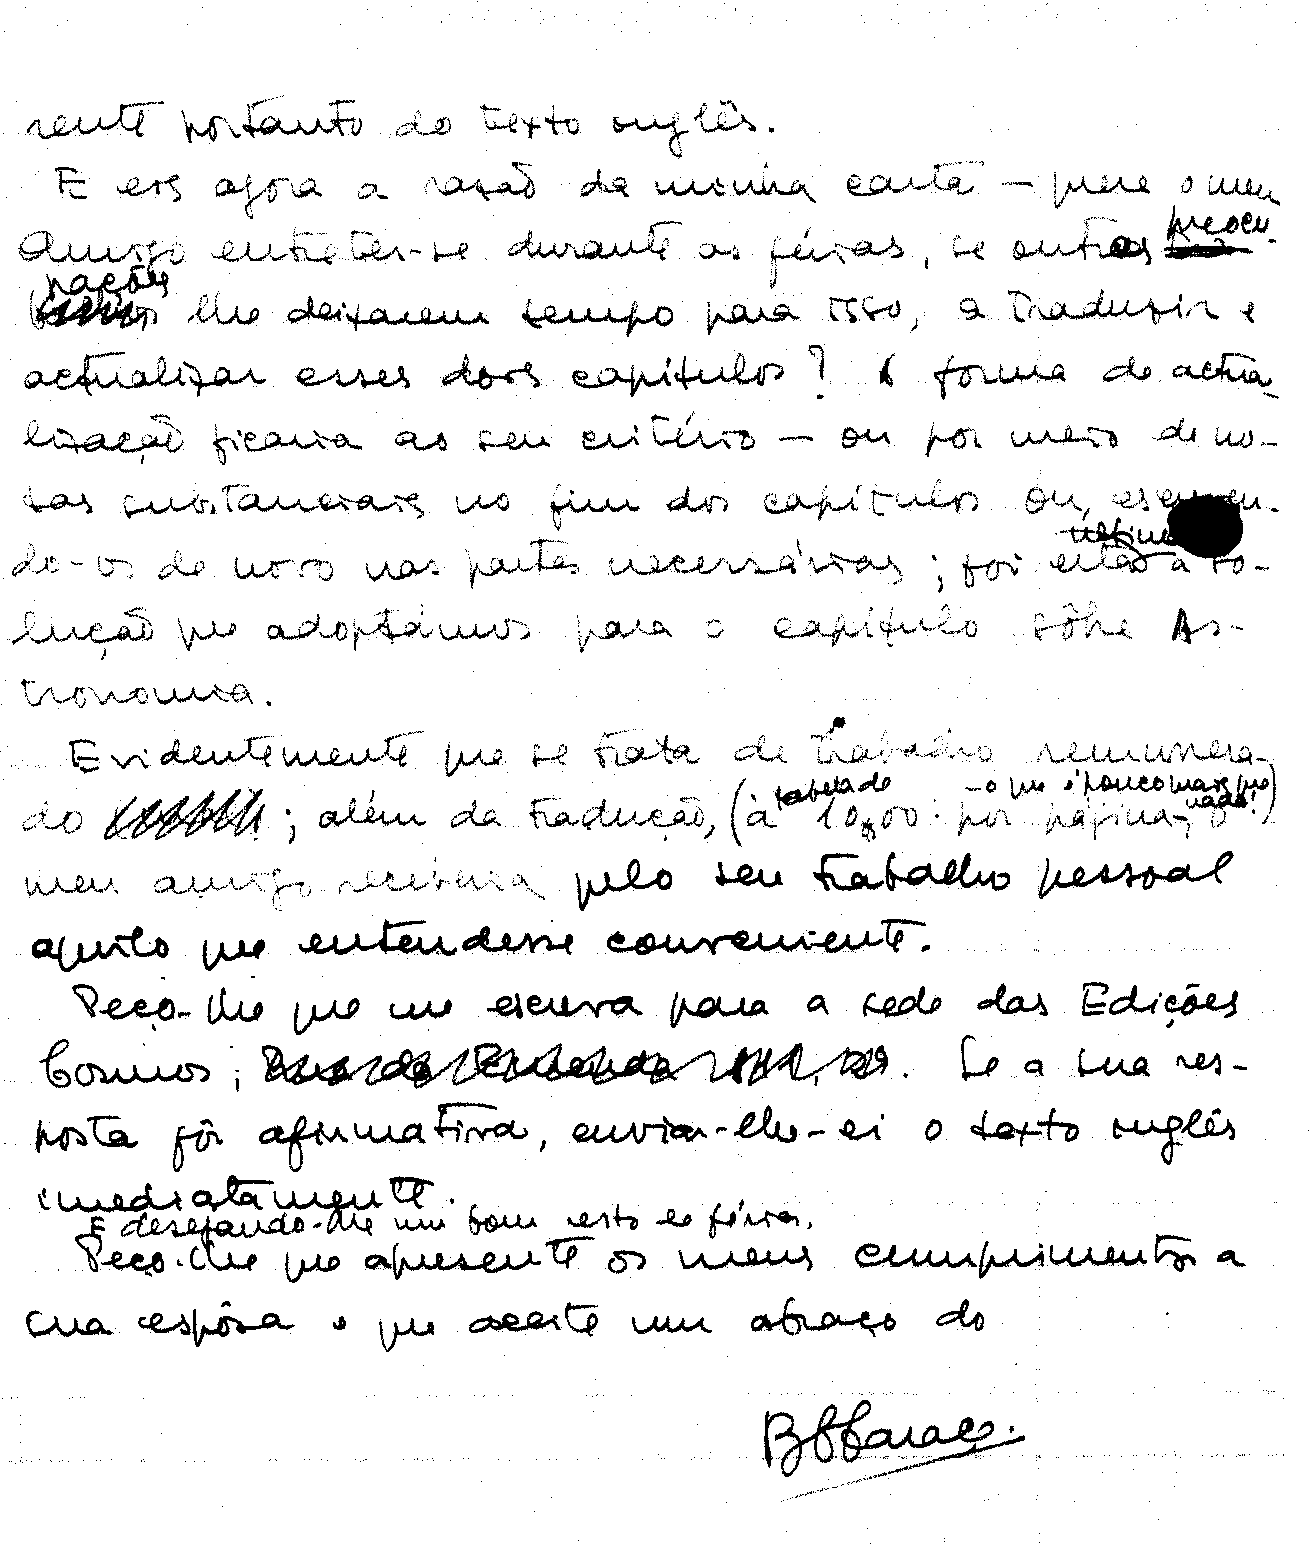 rente portanto do texto inglês.
E eis agora a razão da minha carta — quere o meu
Amigo entreter-se durante as férias, se outras preocu-
pações lhe deixarem tempo para isso, a traduzir e
actualizar esses dois capítulos? A forma de actua-
lização ficaria ao seu critério — ou por meio de no-
tas substanciais no fim dos capítulos ou, escreven-
do-os de novo nas partes necessárias; foi esta a so-
lução que adoptámos para o capítulo sôbre As-
tronomia.
Evidentemente que se trata de trabalho remunera-
do; além da tradução, (à tabela de 10$00 por página, - o que é pouco mais que nada!) o
meu amigo receberia pelo seu trabalho pessoal
aquilo que entendesse conveniente.
Peço-lhe que me escreva para a sede das Edições
Cosmos; Se a sua res-
posta fôr afirmativa, enviar-lhe-ei o texto inglês
imediatamente.
E desejando-lhe um bom resto de férias,
Peço-lhe que apresente os meus cumprimentos a
sua espôsa e que aceite um abraço do
B J Caraça.